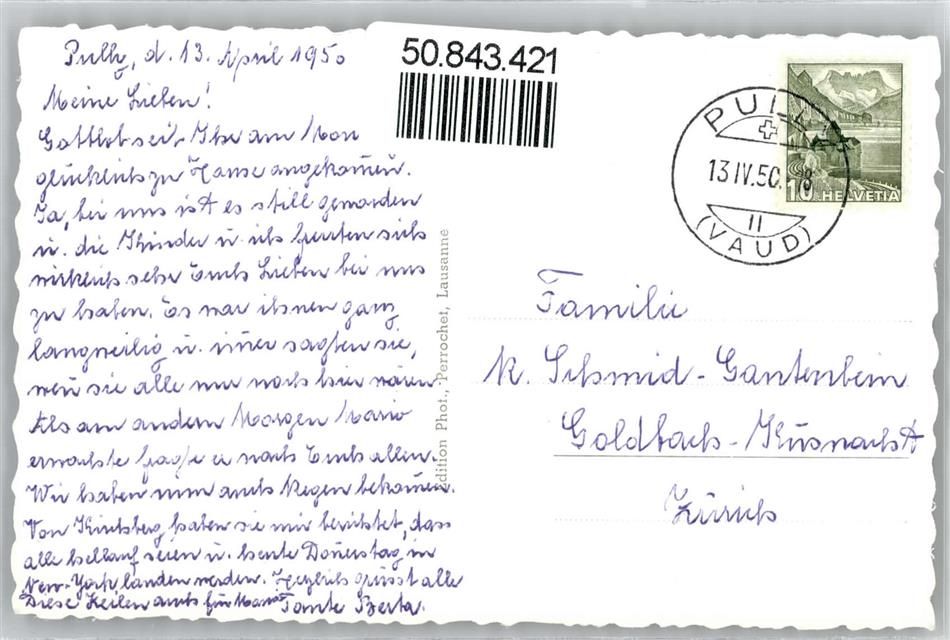 Pully, d. 13. April 1950
Meine Lieben!
Gottlob seit Ihr am Mon
glücklich zu Hause angekom̅en.
Ja, bei uns ist es still geworden
u. die Kinder u. ich freuten sich
wirklich sehr Euch Lieben bei uns
zu haben. Es war ihnen ganz
langweilig u. im̅er sagten sie,
wen̅ sie alle nur noch hier wären
Als am andern Morgen Mario
erwachte fragte er nach Euch allen.
Wir haben nun auch Regen bekom̅en.
Von Kirchberg haben sie mir berichtet, dass
alle hellauf seien u. heute Donerstag, in
New-York landen werden. Herzlich grüsst alle
Diese Zeilen auch für Mario Tante Berta.
50.843.421
PULLY
13 IV. 50. 18
II
(VAUD)
10 HELVETIA
Edition Phot., Perrochet, Lausanne
Familie
K. Schmid-Gantenbein
Goldbach-Küsnacht
Zürich